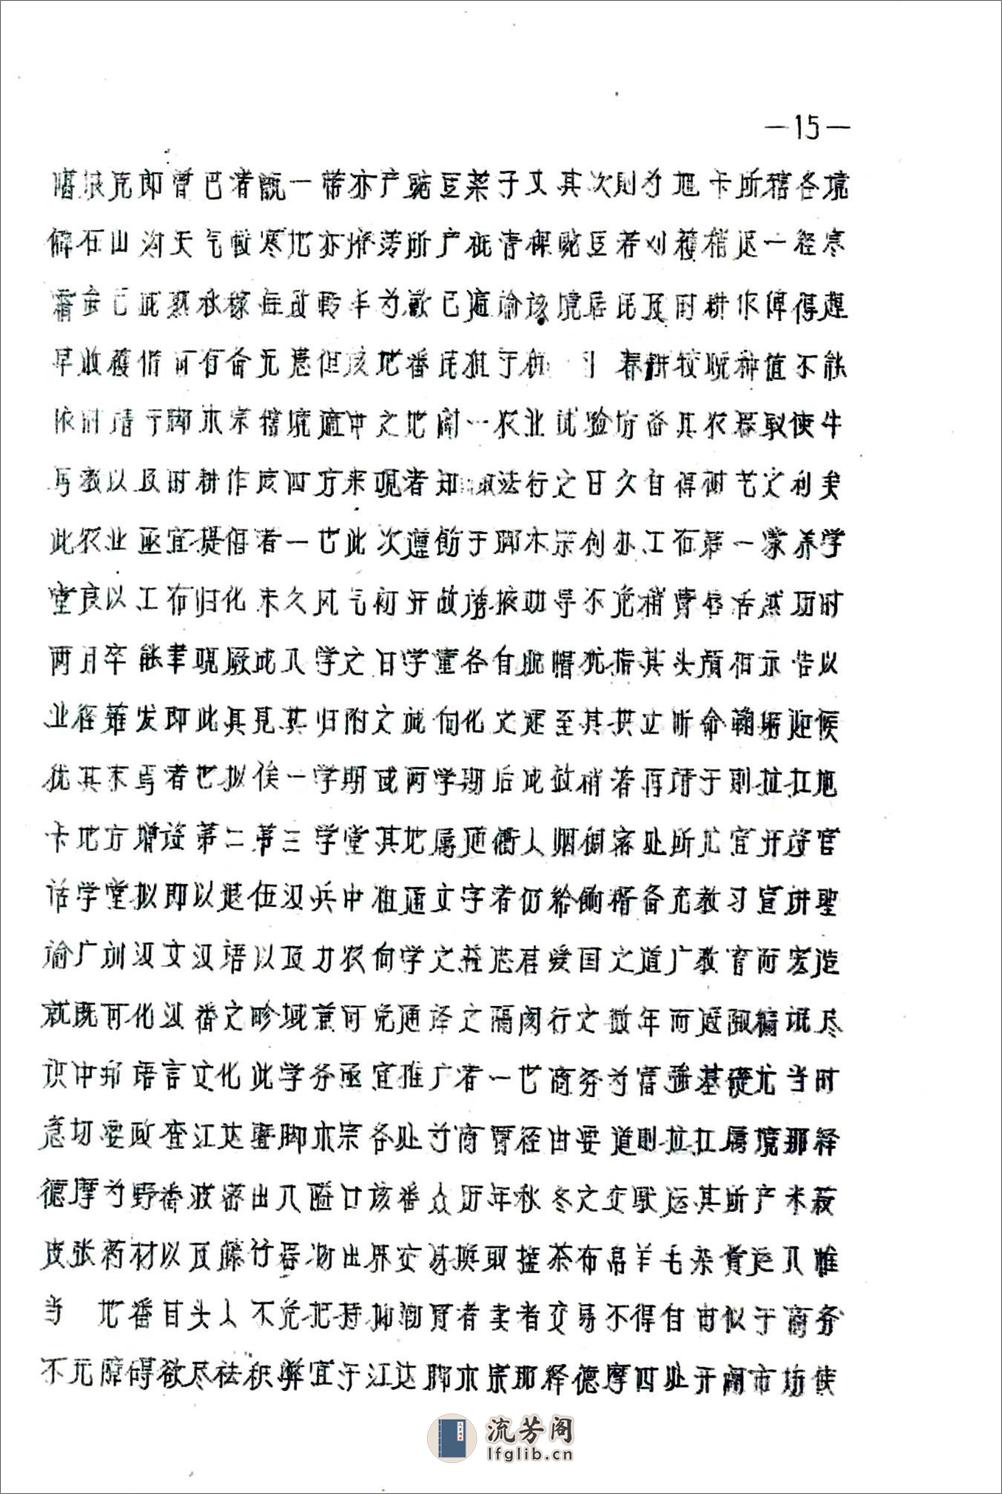 —15—
一带亦产豌豆菜子又其次则为旭卡所辖各境
石山沟天气酸寒地亦所产青稞豌豆若刈获稍迟一经寒
霜已成熟秋稼每致转丰为歉已通谕该境居民及时耕作俾得趁
早收获借可有备无患但该地番民狃于春耕较晚种值不能
依时请于脚木宗辖境适中之地开一农业试验场备具农器取使牛
马教以及时耕作庶四方来观者知法行之日久自得树艺之利矣
此农业亟宜提倡者一也此次遵饬于脚木宗创办工布第一蒙养学
堂良以工布归化未久风气初开故诱掖助导不免稍费唇舌然历时
两月卒能毕观厥成入学之日学童各自脱帽犹指其头颅相示告以
业经薙发即此具见其归附之诚向化之速至其拱立听命鞠躬迎候
犹其末焉者也拟俟一学期或两学期后成效稍著再请于则拉扛旭
卡地方增设第二第三学堂其地属通衢人烟稠密处所尤宜开设官
话学堂拟即以退伍汉兵中粗通文字者仍给饷糈备充教习宣讲圣
谕广训汉文汉语以及力农向学之益忠君爱国之道广教育而宏造
就既可化汉番之畛域兼可免通译之隔阂行之数年而遐陬编氓尽
识中邦语言文化此学务亟宜推广者一也商务为富强基础尤当时
急切要政查江达暨脚木宗各处为商贾径由要道则拉扛属境那释
德摩为野番波密出入隘口该番众历年秋冬之交驮运其所产米菽
皮张药材以及藤竹器物出界交易换取擦茶布帛羊毛杂货运入惟
当 地番目头人不免把持抑勒买者卖者交易不得自由似于商务
不无障碍欲尽祛积弊宜于江达脚木宗那释德摩四处开辟市场使
流芳阁
lfglib.cn